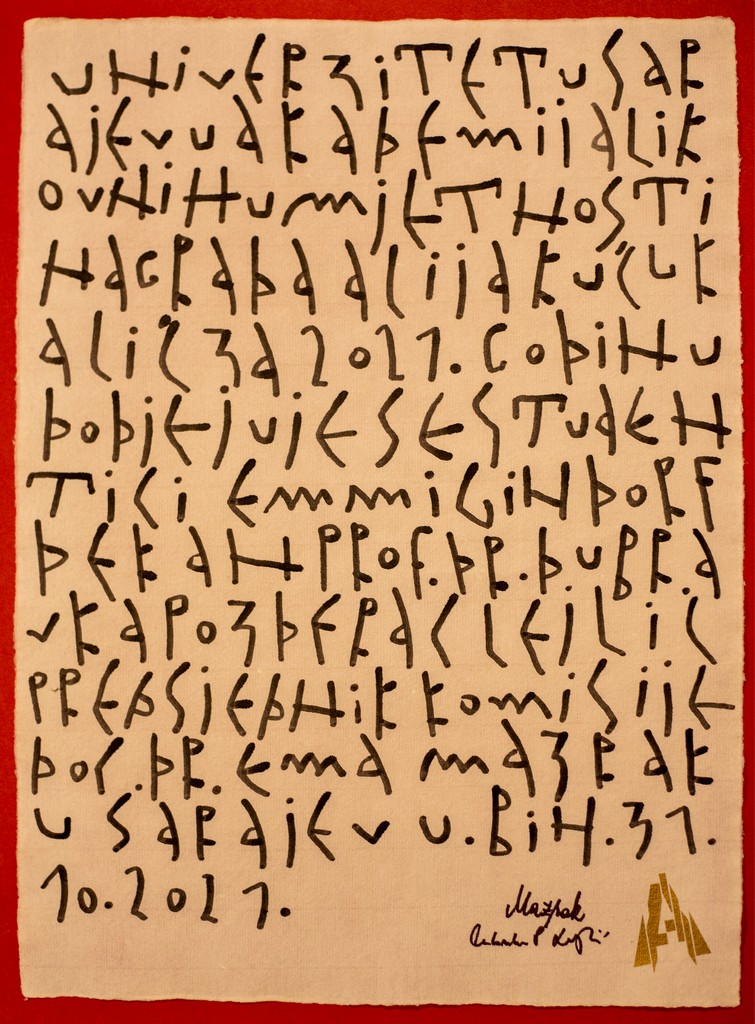 UNIVERZITET U SAR
AJEVU AKADEMIJA LIK
OVNIH UMJETNOSTI
NAGRADA ALIJA KUČUK
ALIĆ ZA 2021. GODINU
DODJEJUJE SE STUDEN
TICI EMMI GINDORF
DEKAN PROF.DR.DUBR.A
VKA POZDERAC LEJLIC
PREDSJEDNIK KOMISIJE
DOC.DR.EMA MAZRAK
U SARAJEVU.BIH.31.
10.2021.
Mazrak